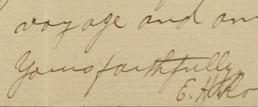 voyage and am
Yours faithfully